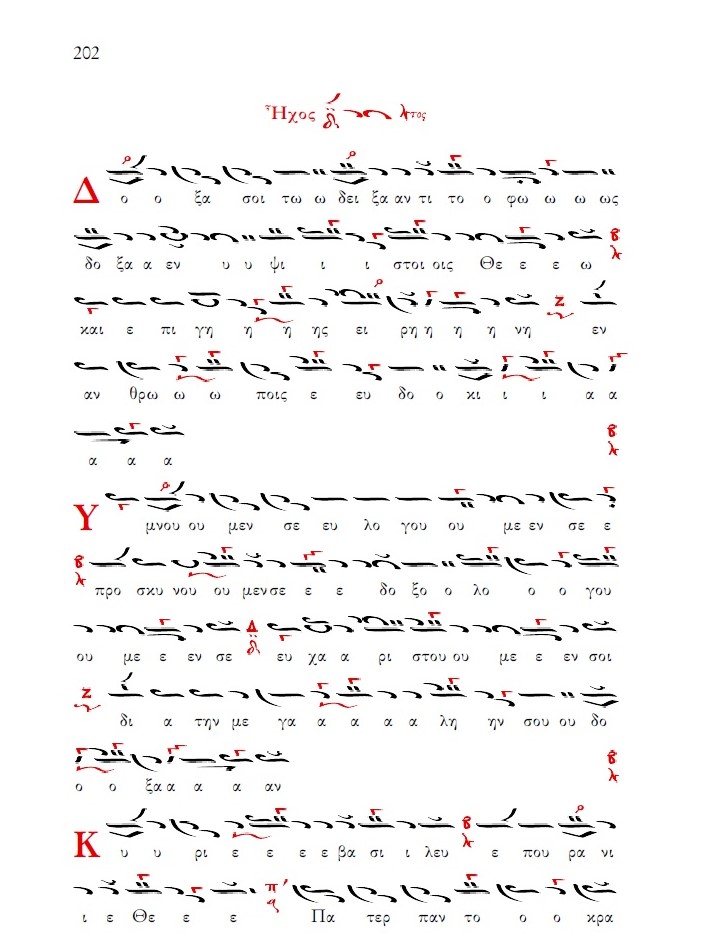 202
Ἦχος λτος
Δ ο ο ξα σοι τω ω δει ξα αν τι το ο φω ω ω ως
δο ξα α εν υ υ ψι ι ι στοι οις Θε ε ε ω
και ε πι γη η η ης ει ρη η η η νη εν
αν θρω ω ω ποις ε ευ δο ο κι ι ι α α
α α α
Υ μνου ου μεν σε ευ λο γου ου με εν σε ε
προ σκυ νου ου μεν σε ε ε δο ξο ο λο ο ο γου
ου με ε εν σε Δ ευ χα α ρι στου ου με ε εν σοι
Z δι α την με γα α α α α λη ην σου ου δο
ο ο ξα α α α αν
Κ υ υ ρι ε ε ε ε βα σι ι λευ ε που ρα νι
ι ε Θε ε ε Πα τερ παν το ο ο κρα